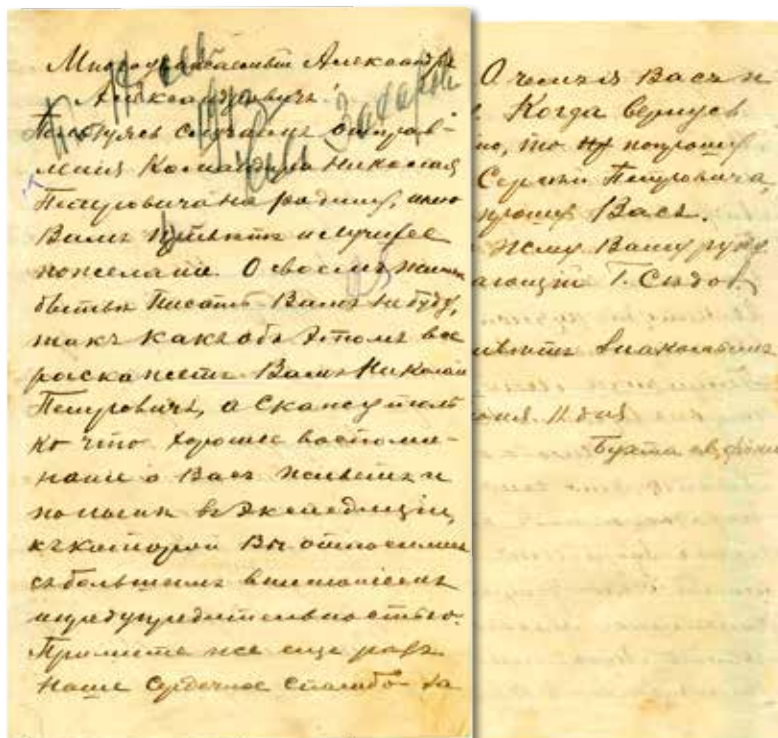 Многоуважаемый Александръ
Александровичъ!
Пользуясь случаемъ отправ-
ленія Командира Николая
Петровича на родину, шлю
Вамъ привѣтъ и лучшее
пожеланіе. О своемъ житьѣ
бытьѣ писать Вамъ не буду,
такъ какъ объ этомъ все
раскажетъ Вамъ Николай
Петровичъ, а скажу толь
ко что хорошее воспоми-
наніе о Васъ живетъ и
по нынѣ въ Экспедиціи,
къ которой Вы относились
съ большимъ вниманіемъ
и предупредительностью.
Примите же еще разъ
наше сердечное спасибо за
О чемъ я Васъ и
Когда вернусь
то попрошу
Сергѣя Петровича,
прошу Васъ.
жму Вашу руку
Г. Сѣдов
знакомымъ
11 дня
Бухта
Захаров